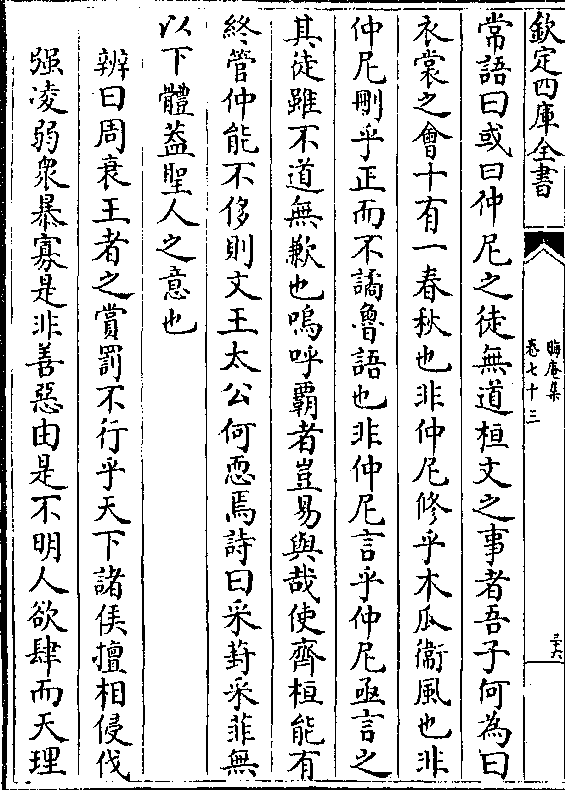 欽定四庫全書
晦庵集
卷七十三
三六
常語曰或曰仲尼之徒無道桓文之事者吾子何為曰
衣裳之會十有一春秋也非仲尼修乎木瓜衞風也非
仲尼刪乎正而不譎魯語也非仲尼言乎仲尼亟言之
其徒雖不道無歉也嗚呼霸者豈易與哉使齊桓能有
終管仲能不侈則文王太公何恧焉詩曰采葑采菲無
以下體蓋聖人之意也
辨曰周衰王者之賞罰不行乎天下諸侯擅相侵伐
强凌弱衆暴寡是非善惡由是不明人欲肆而天理